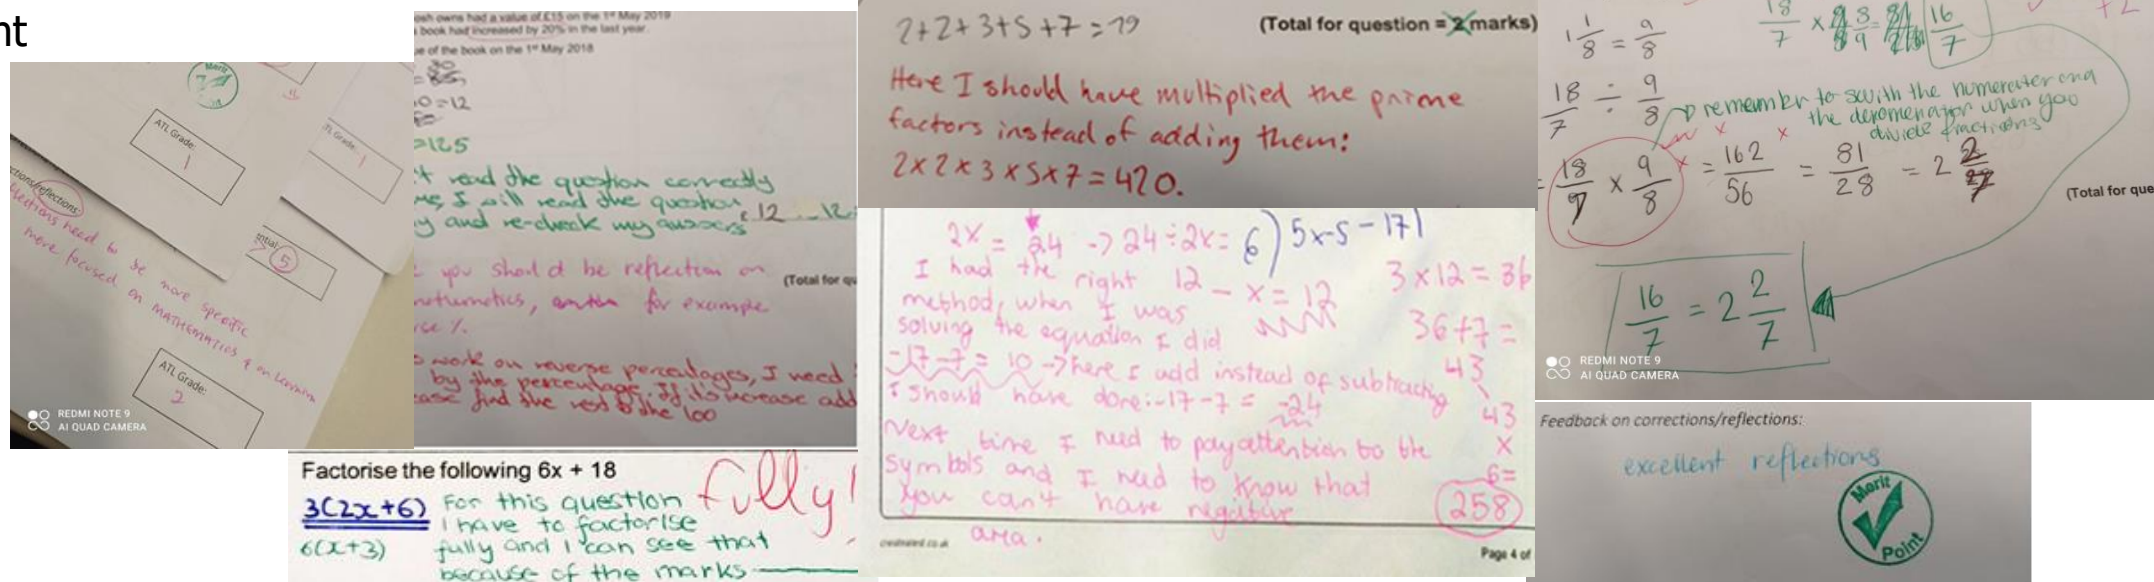 nt
Merit
ATL Grade:
1
ATL Grade:
1
ctions/reflections:
need to be more specific
more focused on MATHEMATICS & on learning
ntial:
5
ATL Grade:
2
REDMI NOTE 9
AI QUAD CAMERA
osh owns had a value of £15 on the 1st May 2019
book had increased by 20% in the last year.
ue of the book on the 1st May 2018
0=12
=125
read the question correctly
I will read the question
y and re-check my answers
12
12
you should be reflection on
for example
se %.
(Total for qu
work on reverse percentages, I need
by the percentage. If it's increase add
ease find the rest to the 100
Factorise the following 6x + 18
fully!
3(2x+6) For this question
I have to factorise
6(x+3) fully and I can see that
because of the marks
2+2+3+5+7=19
(Total for question = 2 marks)
Here I should have multiplied the prime
factors instead of adding them:
2×2×3×5×7=420.
2x = 24 -> 24÷2x= 6) 5x-5-17)
I had the right 12 - x = 12 3×12=36
method, when I was
solving the equation I did 36+7=
-17-7= 10 -> here I add instead of subtracting 43
I should have done:-17-7= -24 43
Next time I need to pay attention to the x
symbols and I need to know that 6=
you can't have negative 258
area.
Page 4 of
1 1/8 = 9/8
18/7 × 8/9 = 16/7
+2
18/7 ÷ 9/8
remember to swith the numerater and
the denomenator when you
divide fractions
= 18/7 × 9/8 = 162/56 = 81/28 = 2
(Total for que
16/7 = 2 2/7
REDMI NOTE 9
AI QUAD CAMERA
Feedback on corrections/reflections:
excellent reflections
Merit
Point